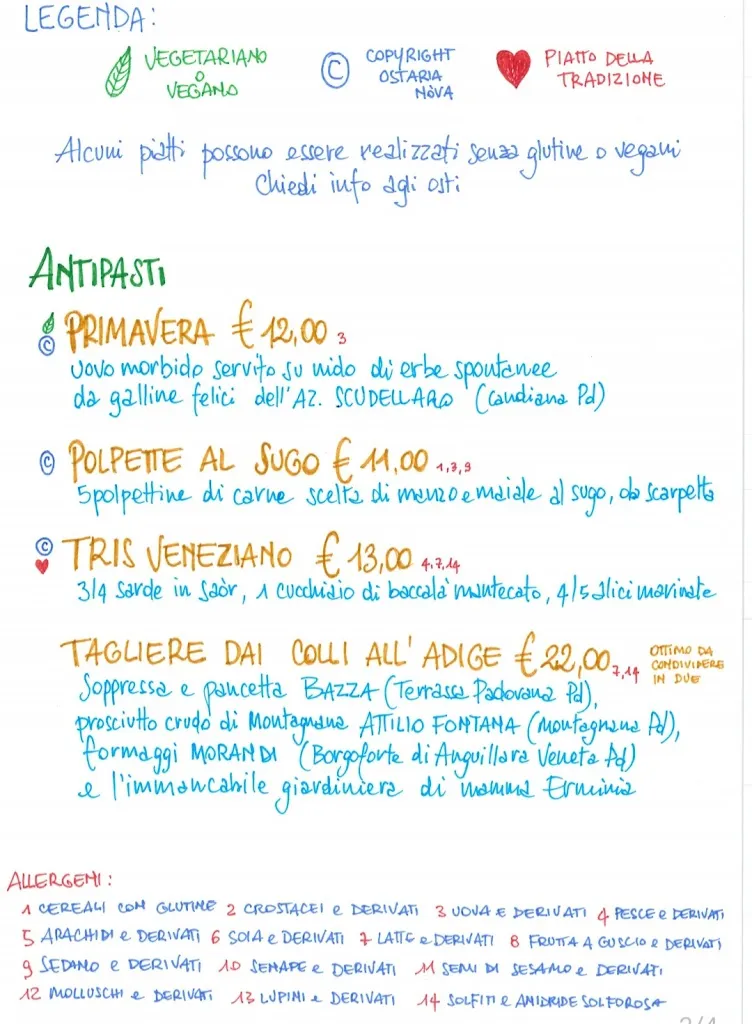 LEGENDA:
VEGETARIANO
O
VEGANO
©
COPYRIGHT
OSTARIA
NÒVA
PIATTO DELLA
TRADIZIONE
Alcuni piatti possono essere realizzati senza glutine o vegani
Chiedi info agli osti
ANTIPASTI
© PRIMAVERA € 12,00 3
uovo morbido servito su nido di erbe spontanee
da galline felici dell'AZ. SCUDELLARO (Candiana Pd)
© POLPETTE AL SUGO € 11,00 1,3,9
5 polpettine di carne scelta di manzo e maiale al sugo, da scarpetta
© TRIS VENEZIANO € 13,00 4,7,14
3/4 sarde in saòr, 1 cucchiaio di baccalà mantecato, 4/5 alici marinate
TAGLIERE DAI COLLI ALL'ADIGE € 22,00 7,14
OTTIMO DA
CONDIVIDERE
IN DUE
Soppressa e pancetta BAZZA (Terrassa Padovana Pd),
prosciutto crudo di Montagnana ATTILIO FONTANA (Montagnana Pd),
formaggi MORANDI (Borgoforte di Anguillara Veneta Pd)
e l'immancabile giardiniera di mamma Erminia
ALLERGENI:
1 CEREALI CON GLUTINE 2 CROSTACEI e DERIVATI 3 UOVA E DERIVATI 4 PESCE e DERIVATI
5 ARACHIDI e DERIVATI 6 SOIA e DERIVATI 7 LATTE e DERIVATI 8 FRUTTA A GUSCIO e DERIVATI
9 SEDANO e DERIVATI 10 SENAPE e DERIVATI 11 SEMI DI SESAMO e DERIVATI
12 MOLLUSCHI e DERIVATI 13 LUPINI e DERIVATI 14 SOLFITI e ANIDRIDE SOLFOROSA